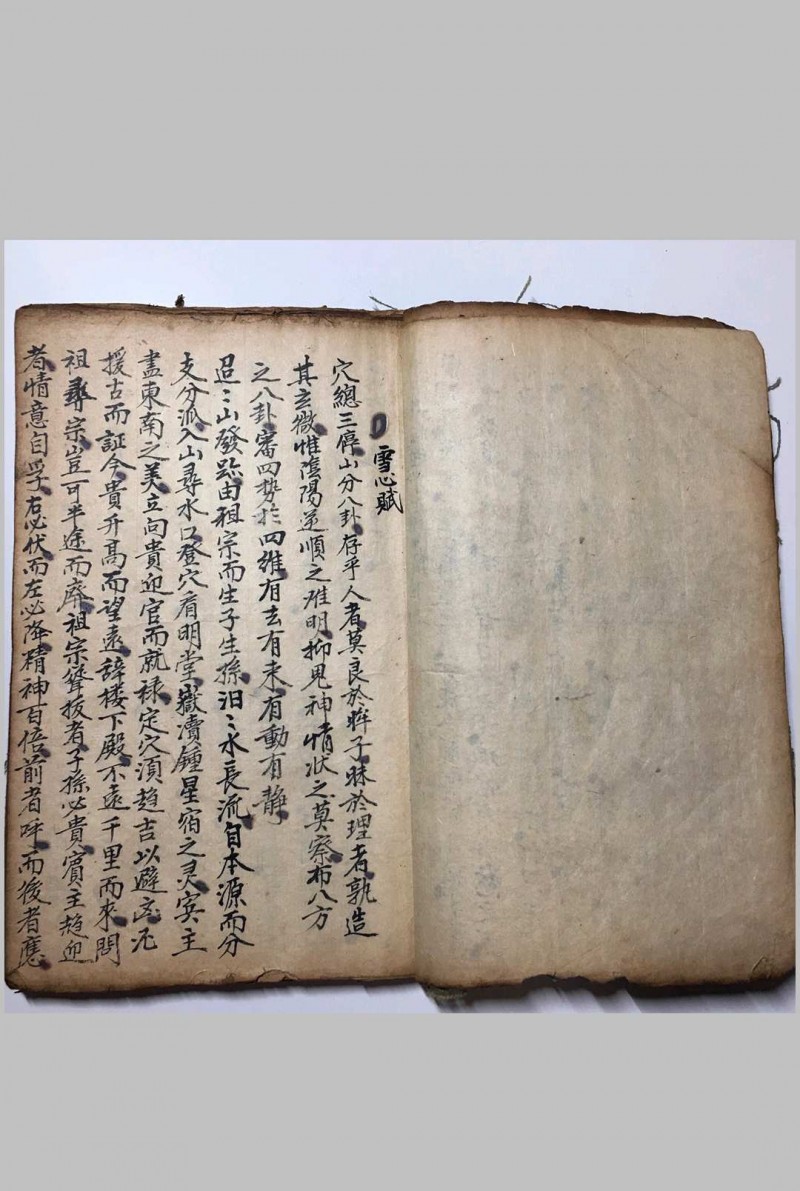 雪心賦
穴總三停山分八卦存乎人者莫良於眸子昧於理者孰造
其玄微惟陰陽逆順之难明抑鬼神情状之莫察布八方
之八卦審四势於四维有去有来有動有静
迢〻山發跡由祖宗而生子生孫汨〻水長流自本源而分
支分派入山尋水口登穴看明堂嶽瀆鍾星宿之灵賓主
盡東南之美立向貴迎官而就禄定穴湏趋吉以避凶尤
援古而証今貴升髙而望遠辞楼下殿不遠千里而來問
祖尋宗豈可半途而廢祖宗聳拔者子孫必貴賓主趋迎
者情意自孚右必伏而左必降精神百倍前者呼而後者應